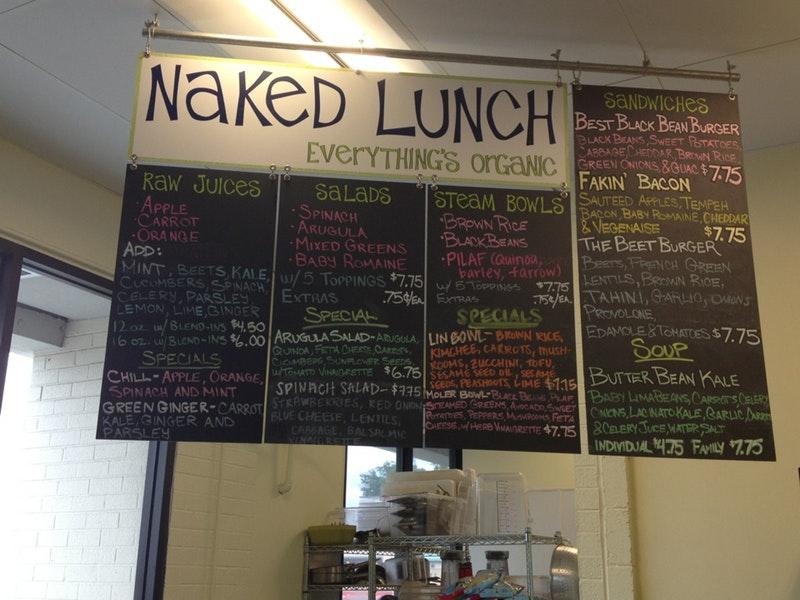 NaKeD LUNCH
EVERYTHING'S ORGANIC
RAW JUICES
• APPLE
• CARROT
• ORANGE
ADD:
MINT, BEETS, KALE,
CUCUMBERS, SPINACH
CELERY, PARSLEY
LEMON, LIME, GINGER
12 oz w/ BLEND-INS $4.50
16 oz. w/ BLEND-INS $6.00
SPECIALS
CHILL- APPLE, ORANGE,
SPINACH AND MINT
GREEN GINGER- CARROT
KALE, GINGER AND
PARSLEY
SALADS
• SPINACH
• ARUGULA
• MIXED GREENS
• BABY ROMAINE
w/ 5 TOPPINGS $7.75
EXTRAS .75¢/EA.
SPECIAL
ARUGULA SALAD- ARUGULA,
QUINOA, FETA CHEESE, CARROTS,
CUCUMBERS, SUNFLOWER SEEDS,
w/ TOMATO VINAIGRETTE $6.75
SPINACH SALAD- $7.75
STRAWBERRIES, RED ONION
BLUE CHEESE, LENTILS,
CABBAGE, BALSALMIC
VINAIGRETTE
STEAM BOWLS
• BROWN RICE
• BLACK BEANS
• PILAF (Quinoa,
barley, farrow)
w/ 5 TOPPINGS $7.75
EXTRAS .75¢/EA.
SPECIALS
LIN BOWL- BROWN RICE,
KIMCHEE, CARROTS, MUSH-
ROOMS, ZUCCHINI, TOFU,
SESAME SEED OIL, SESAME
SEEDS, PEASHOOTS, LIME $7.75
MOLER BOWL- BLACK BEANS, PILAF,
STEAMED GREENS, AVOCADO, SWEET
POTATOES, PEPPERS, MUSHROOMS, FETA
CHEESE, w/ HERB VINAIGRETTE $7.75
SANDWICHES
BEST BLACK BEAN BURGER
BLACK BEANS, SWEET POTATOES,
CABBAGE, CHEDDAR, BROWN RICE,
GREEN ONIONS, & GUAC $7.75
FAKIN' BACON
SAUTEED APPLES, TEMPEH
BACON, BABY ROMAINE, CHEDDAR
& VEGENAISE $7.75
THE BEET BURGER
BEETS, FRENCH GREEN
LENTILS, BROWN RICE,
TAHINI, GARLIC, ONIONS
PROVOLONE,
EDAMOLE & TOMATOES $7.75
SOUP
BUTTER BEAN KALE
BABY LIMA BEANS, CARROTS, CELERY
ONIONS, LACINATO KALE, GARLIC, CARROT
& CELERY JUICE, WATER, SALT
INDIVIDUAL $4.75 FAMILY $7.75